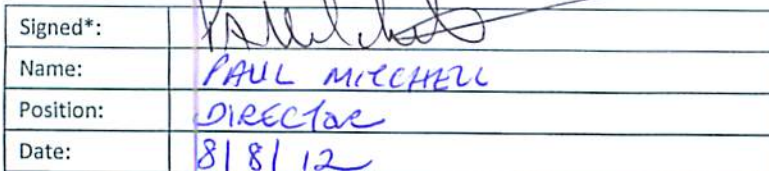 Signed*: PA Mitchell
Name: PAUL MITCHELL
Position: DIRECTOR
Date: 8/8/12